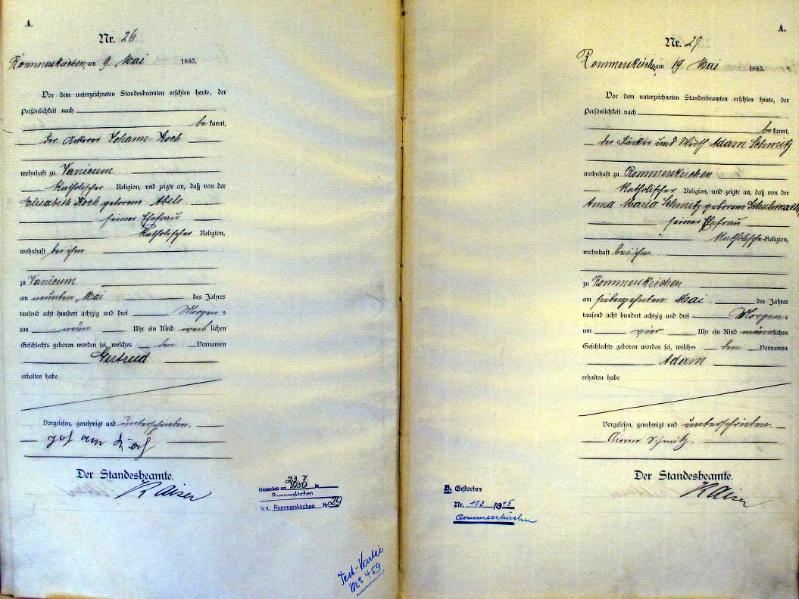 A.
Nr. 26
Rommerskirchen, am 9. Mai 1883.
Vor dem unterzeichneten Standesbeamten erschien heute, der
Persönlichkeit nach
bekannt,
der Ackerer Johann Koch
wohnhaft zu Vanicum
katholischer Religion, und zeigte an, daß von der
Elisabeth Koch geborenen Abels
seiner Ehefrau
katholischer Religion,
wohnhaft bei ihm
zu Vanicum
am neunten Mai des Jahres
tausend acht hundert achtzig und drei Morgens
um neun Uhr ein Kind weiblichen
Geschlechts geboren worden sei, welches den Vornamen
Gertrud
erhalten habe
Vorgelesen, genehmigt und unterschrieben.
Koch
Der Standesbeamte.
Kaiser
Gestorben am
Rommerskirchen
Rommerskirchen
Test-Kartei
No 459
A.
Nr. 27
Rommerskirchen, am 19 Mai 1883.
Vor dem unterzeichneten Standesbeamten erschien heute, der
Persönlichkeit nach
bekannt,
der Bäcker und Wirth Adam Schmitz
wohnhaft zu Rommerskirchen
katholischer Religion, und zeigte an, daß von der
Anna Maria Schmitz geborenen
seiner Ehefrau
katholischer Religion,
wohnhaft bei ihm
zu Rommerskirchen
am siebenzehnten Mai des Jahres
tausend acht hundert achtzig und drei Morgens
um vier Uhr ein Kind männlichen
Geschlechts geboren worden sei, welches den Vornamen
Adam
erhalten habe
Vorgelesen, genehmigt und unterschrieben.
Schmitz.
Der Standesbeamte.
Kaiser
Gestorben
Nr.
Rommerskirchen